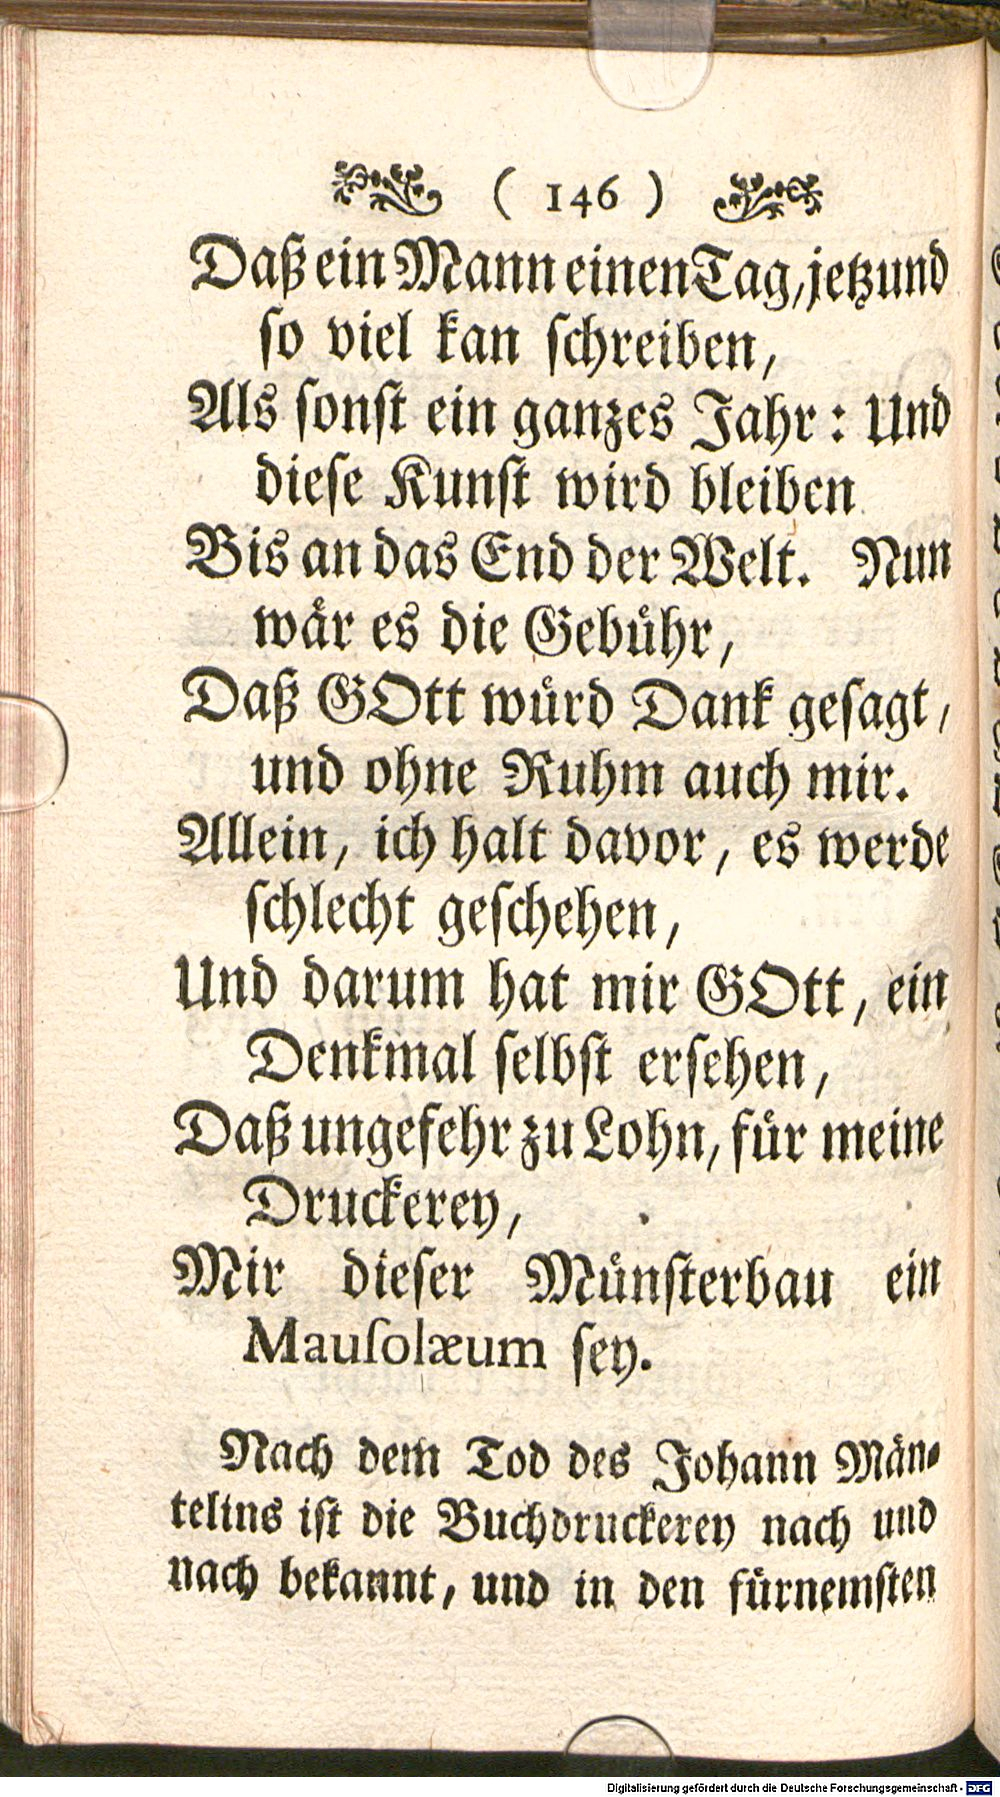 ( 146 )
Daß ein Mann einen Tag, jetzund
so viel kan schreiben,
Als sonst ein ganzes Jahr: Und
diese Kunst wird bleiben
Bis an das End der Welt. Nun
wår es die Gebühr,
Daß GOtt würd Dank gesagt,
und ohne Ruhm auch mir.
Allein, ich halt davor, es werde
schlecht geschehen,
Und darum hat mir GOtt, ein
Denkmal selbst ersehen,
Daß ungefehr zu Lohn, für meine
Druckerey,
Mir dieser Münsterbau ein
Mausolæum sey.
Nach dem Tod des Johann Män-
telins ist die Buchdruckerey nach und
nach bekannt, und in den fürnemsten
Digitalisierung gefördert durch die Deutsche Forschungsgemeinschaft - DFG